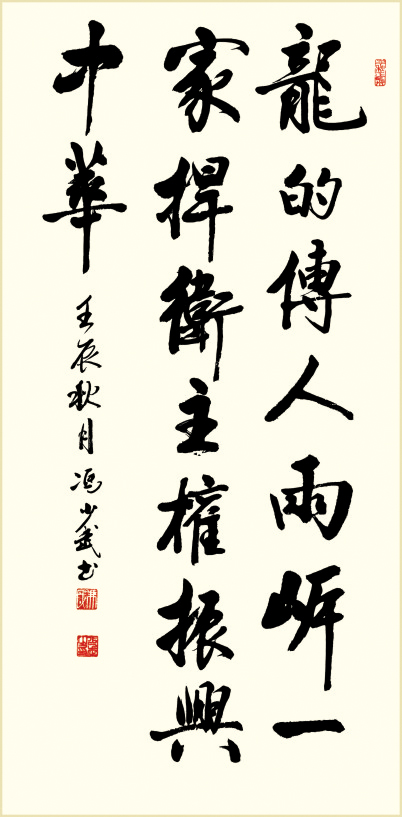 龍的傳人兩岸一
家捍衛主權振興
中華
壬辰秋月冯少武书